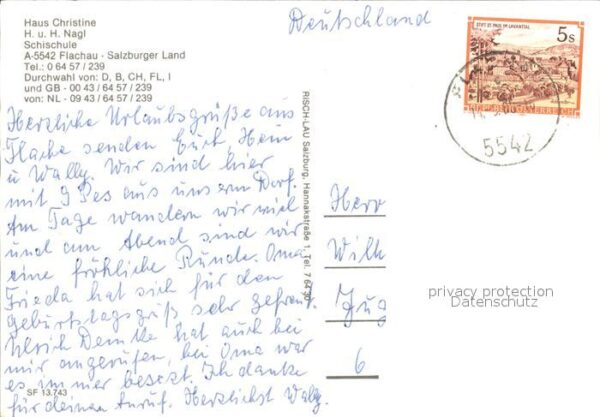 Haus Christine
H. u. H. Nagl
Schischule
A-5542 Flachau - Salzburger Land
Tel.: 0 64 57 / 239
Durchwahl von: D, B, CH, FL, I
und GB - 00 43 / 64 57 / 239
von: NL - 09 43 / 64 57 / 239
Deutschland
STIFT ST. PAUL IM LAVANTTAL
5s
REPUBLIK ÖSTERREICH
5542
Herzliche Urlaubsgrüße aus
Flachau senden Euch, Hein
u Wally. Wir sind hier
mit 9 Pers aus unserm Dorf.
Am Tage wandern wir viel
und am Abend sind wir
eine fröhliche Runde. Oma
Frieda hat sich für den
Geburtstagsgruß sehr gefreut.
Ulrich Demtke hat auch bei
mir angerufen, bei Oma war
es immer besetzt. Ich danke
für deinen Anruf. Herzlichst Wally.
RISCH-LAU Salzburg, Hannakstraße 1, Tel. 7 64 90
Herr
Wilh
6
privacy protection
Datenschutz
SF 13.743